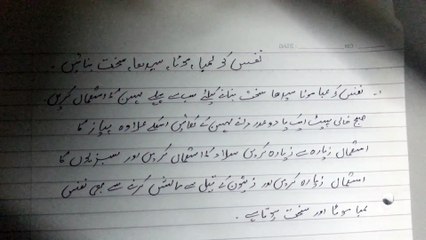 نفس کو لمبا، موٹا، سیدھا، سخت بنائیں۔
نفس کو لمبا موٹا سیدھا سخت بنانے کیلئے سب سے پہلے لہسن کا استعمال کریں
صبح خالی پیٹ ایک یا دو عدد دانے لہسن کے کھائیں اسکے علاوہ پیاز کا
استعمال زیادہ سے زیادہ کریں سلاد کا استعمال کریں اور سبزیوں کا
استعمال زیادہ کریں اور زیتون کے تیل سے مالش کرنے سے بھی نفس
لمبا موٹا اور سخت ہوتا ہے۔